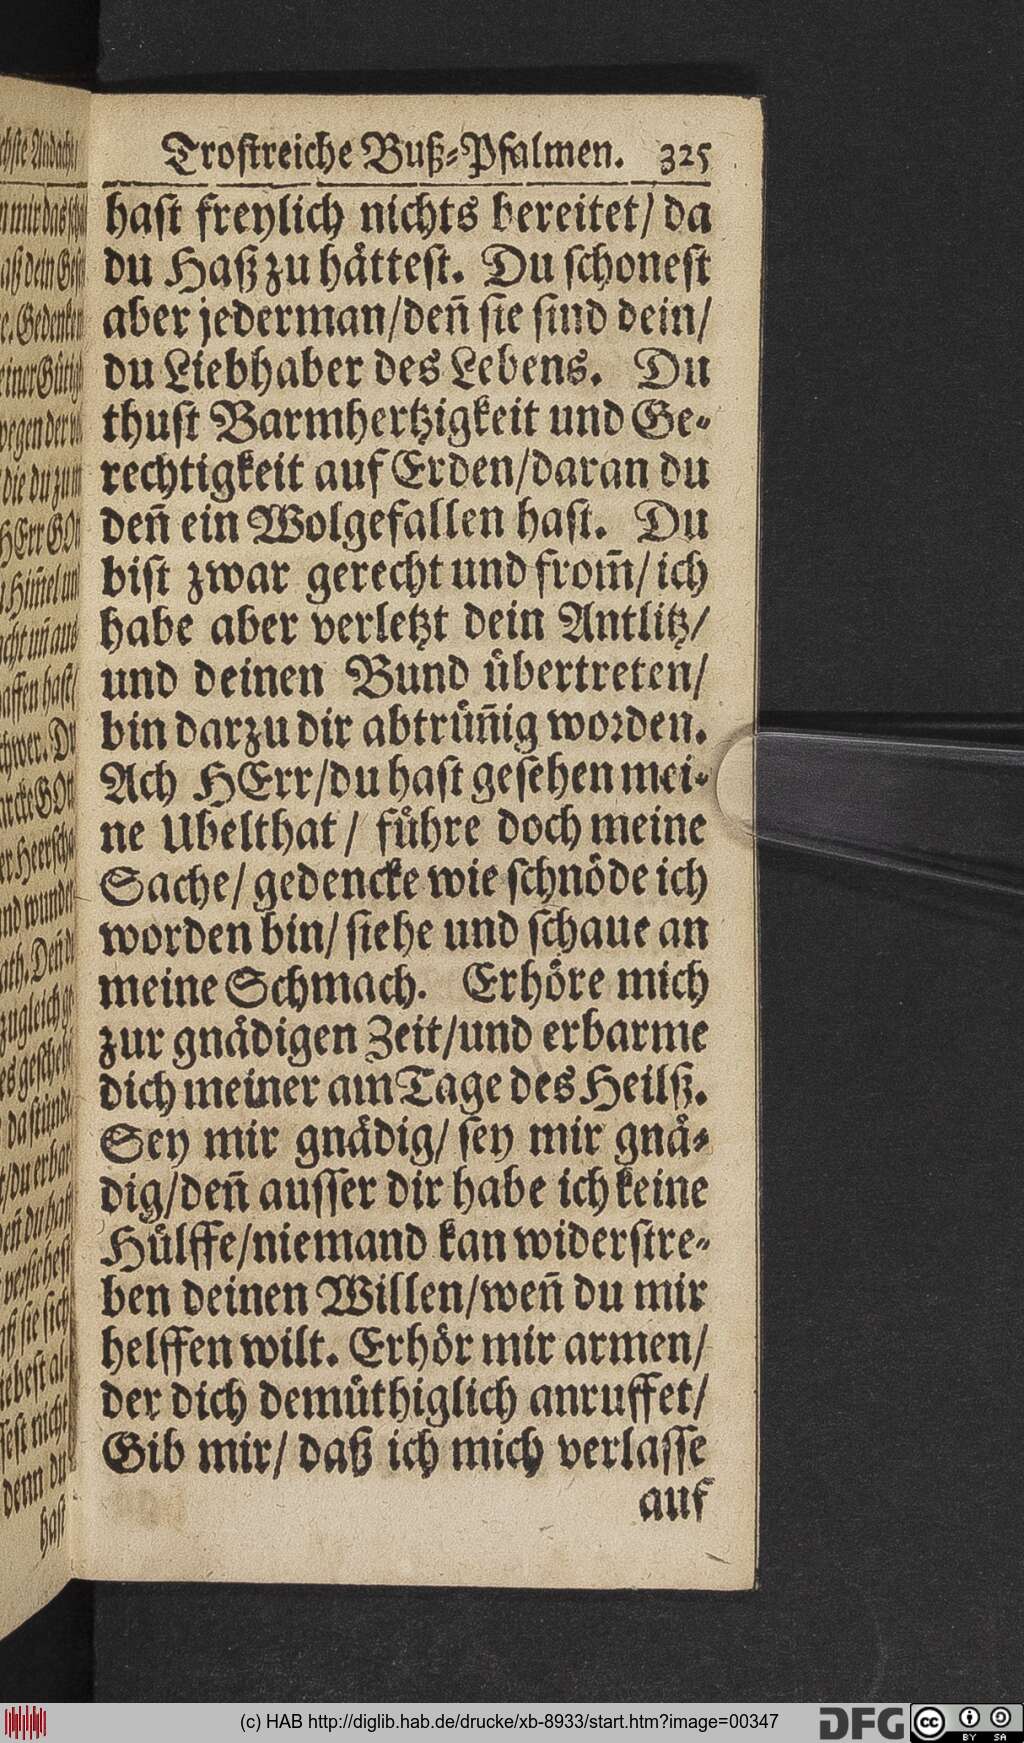 Trostreiche Buß-Psalmen. 325
hast freylich nichts bereitet/ da
du Haß zu håttest. Du schonest
aber jederman/ den̄ sie sind dein/
du Liebhaber des Lebens. Du
thust Barmhertzigkeit und Ge-
rechtigkeit auf Erden/ daran du
den̄ ein Wolgefallen hast. Du
bist zwar gerecht und from̄/ ich
habe aber verletzt dein Antlitz/
und deinen Bund übertreten/
bin darzu dir abtrün̄ig worden.
Ach HErr/ du hast gesehen mei-
ne Ubelthat/ führe doch meine
Sache/ gedencke wie schnöde ich
worden bin/ siehe und schaue an
meine Schmach. Erhöre mich
zur gnädigen Zeit/ und erbarme
dich meiner am Tage des Heilß.
Sey mir gnädig/ sey mir gnå-
dig/ den̄ ausser dir habe ich keine
Hülffe/ niemand kan widerstre-
ben deinen Willen/ wen̄ du mir
helffen wilt. Erhör mir armen/
der dich demüthiglich anruffet/
Gib mir/ daß ich mich verlasse
auf
(c) HAB http://diglib.hab.de/drucke/xb-8933/start.htm?image=00347
DFG
cc BY SA